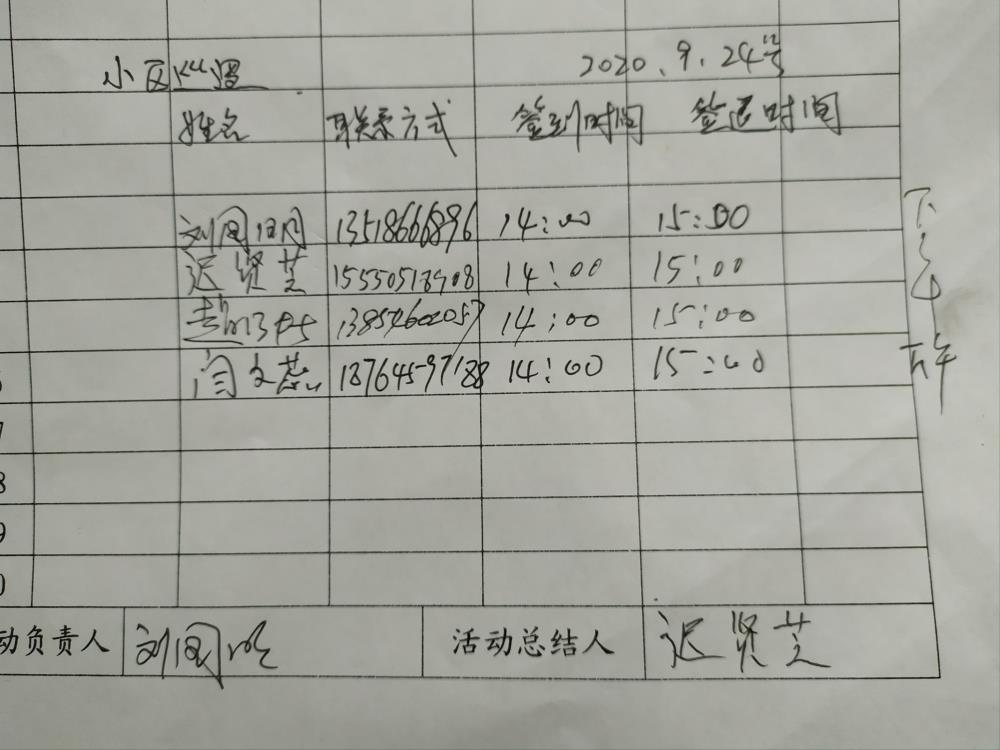 小区巡逻 2020.9.24号
姓名 联系方式 签到时间 签退时间
刘同明 13518666896 14:00 15:00
迟贤芝 15550517908 14:00 15:00
14:00 15:00
闫文 18764597188 14:00 15:00
7
8
9
0
动负责人 刘同明 活动总结人 迟贤芝
下午